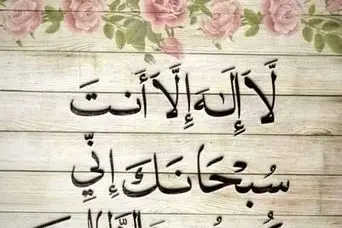 لَّا إِلَٰهَ إِلَّا أَنتَ
سُبْحَانَكَ إِنِّي